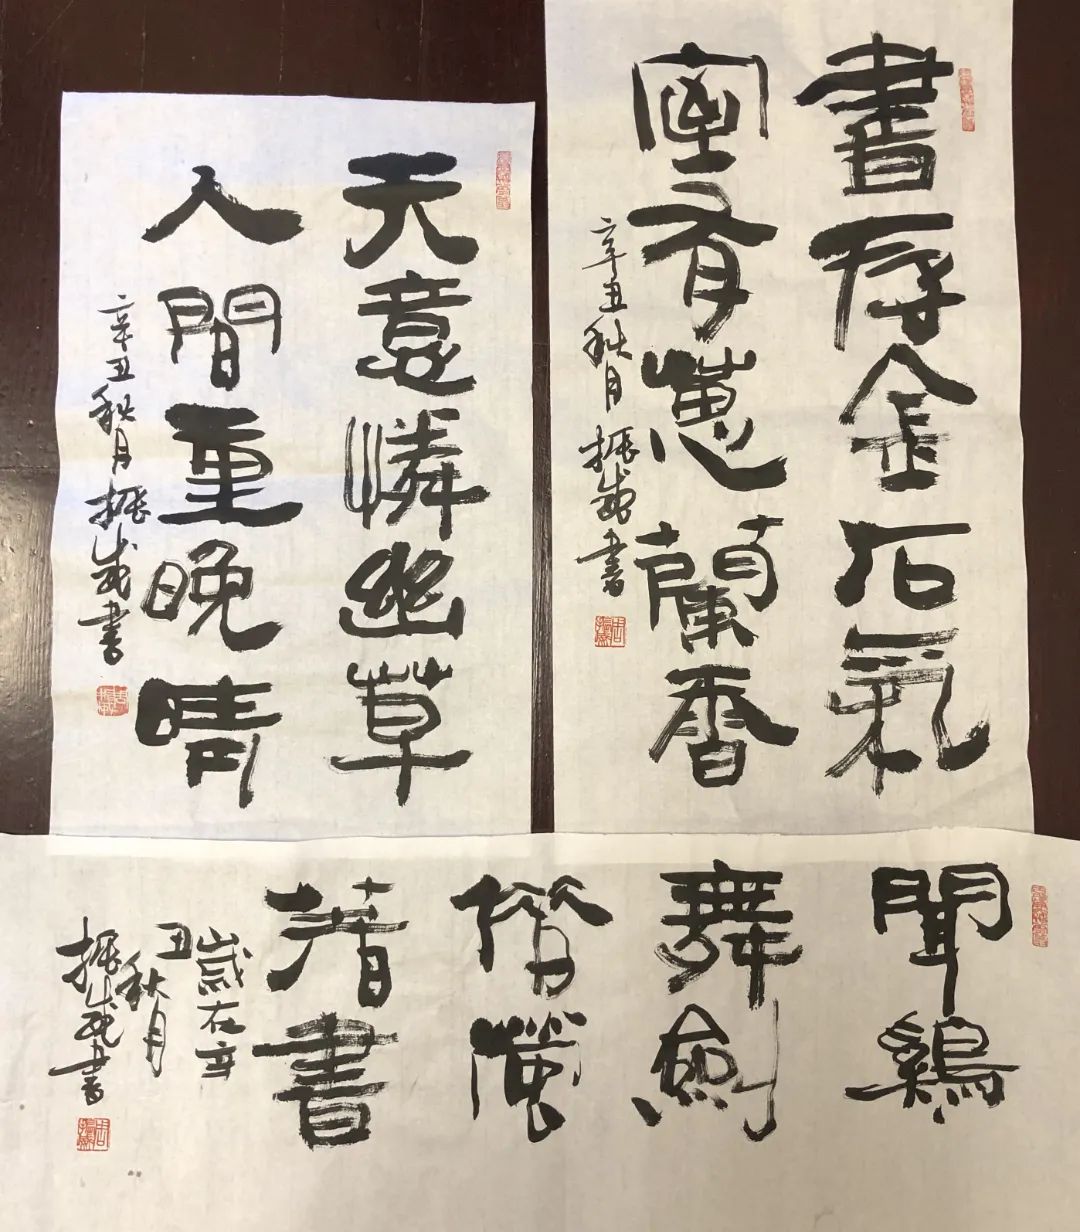 書存金石氣
室有蕙蘭香
辛丑秋月 振書
天意憐幽草
人間重晚晴
辛丑秋月 振書
聞鷄
舞劍
著書
歲在辛
丑秋月
振書